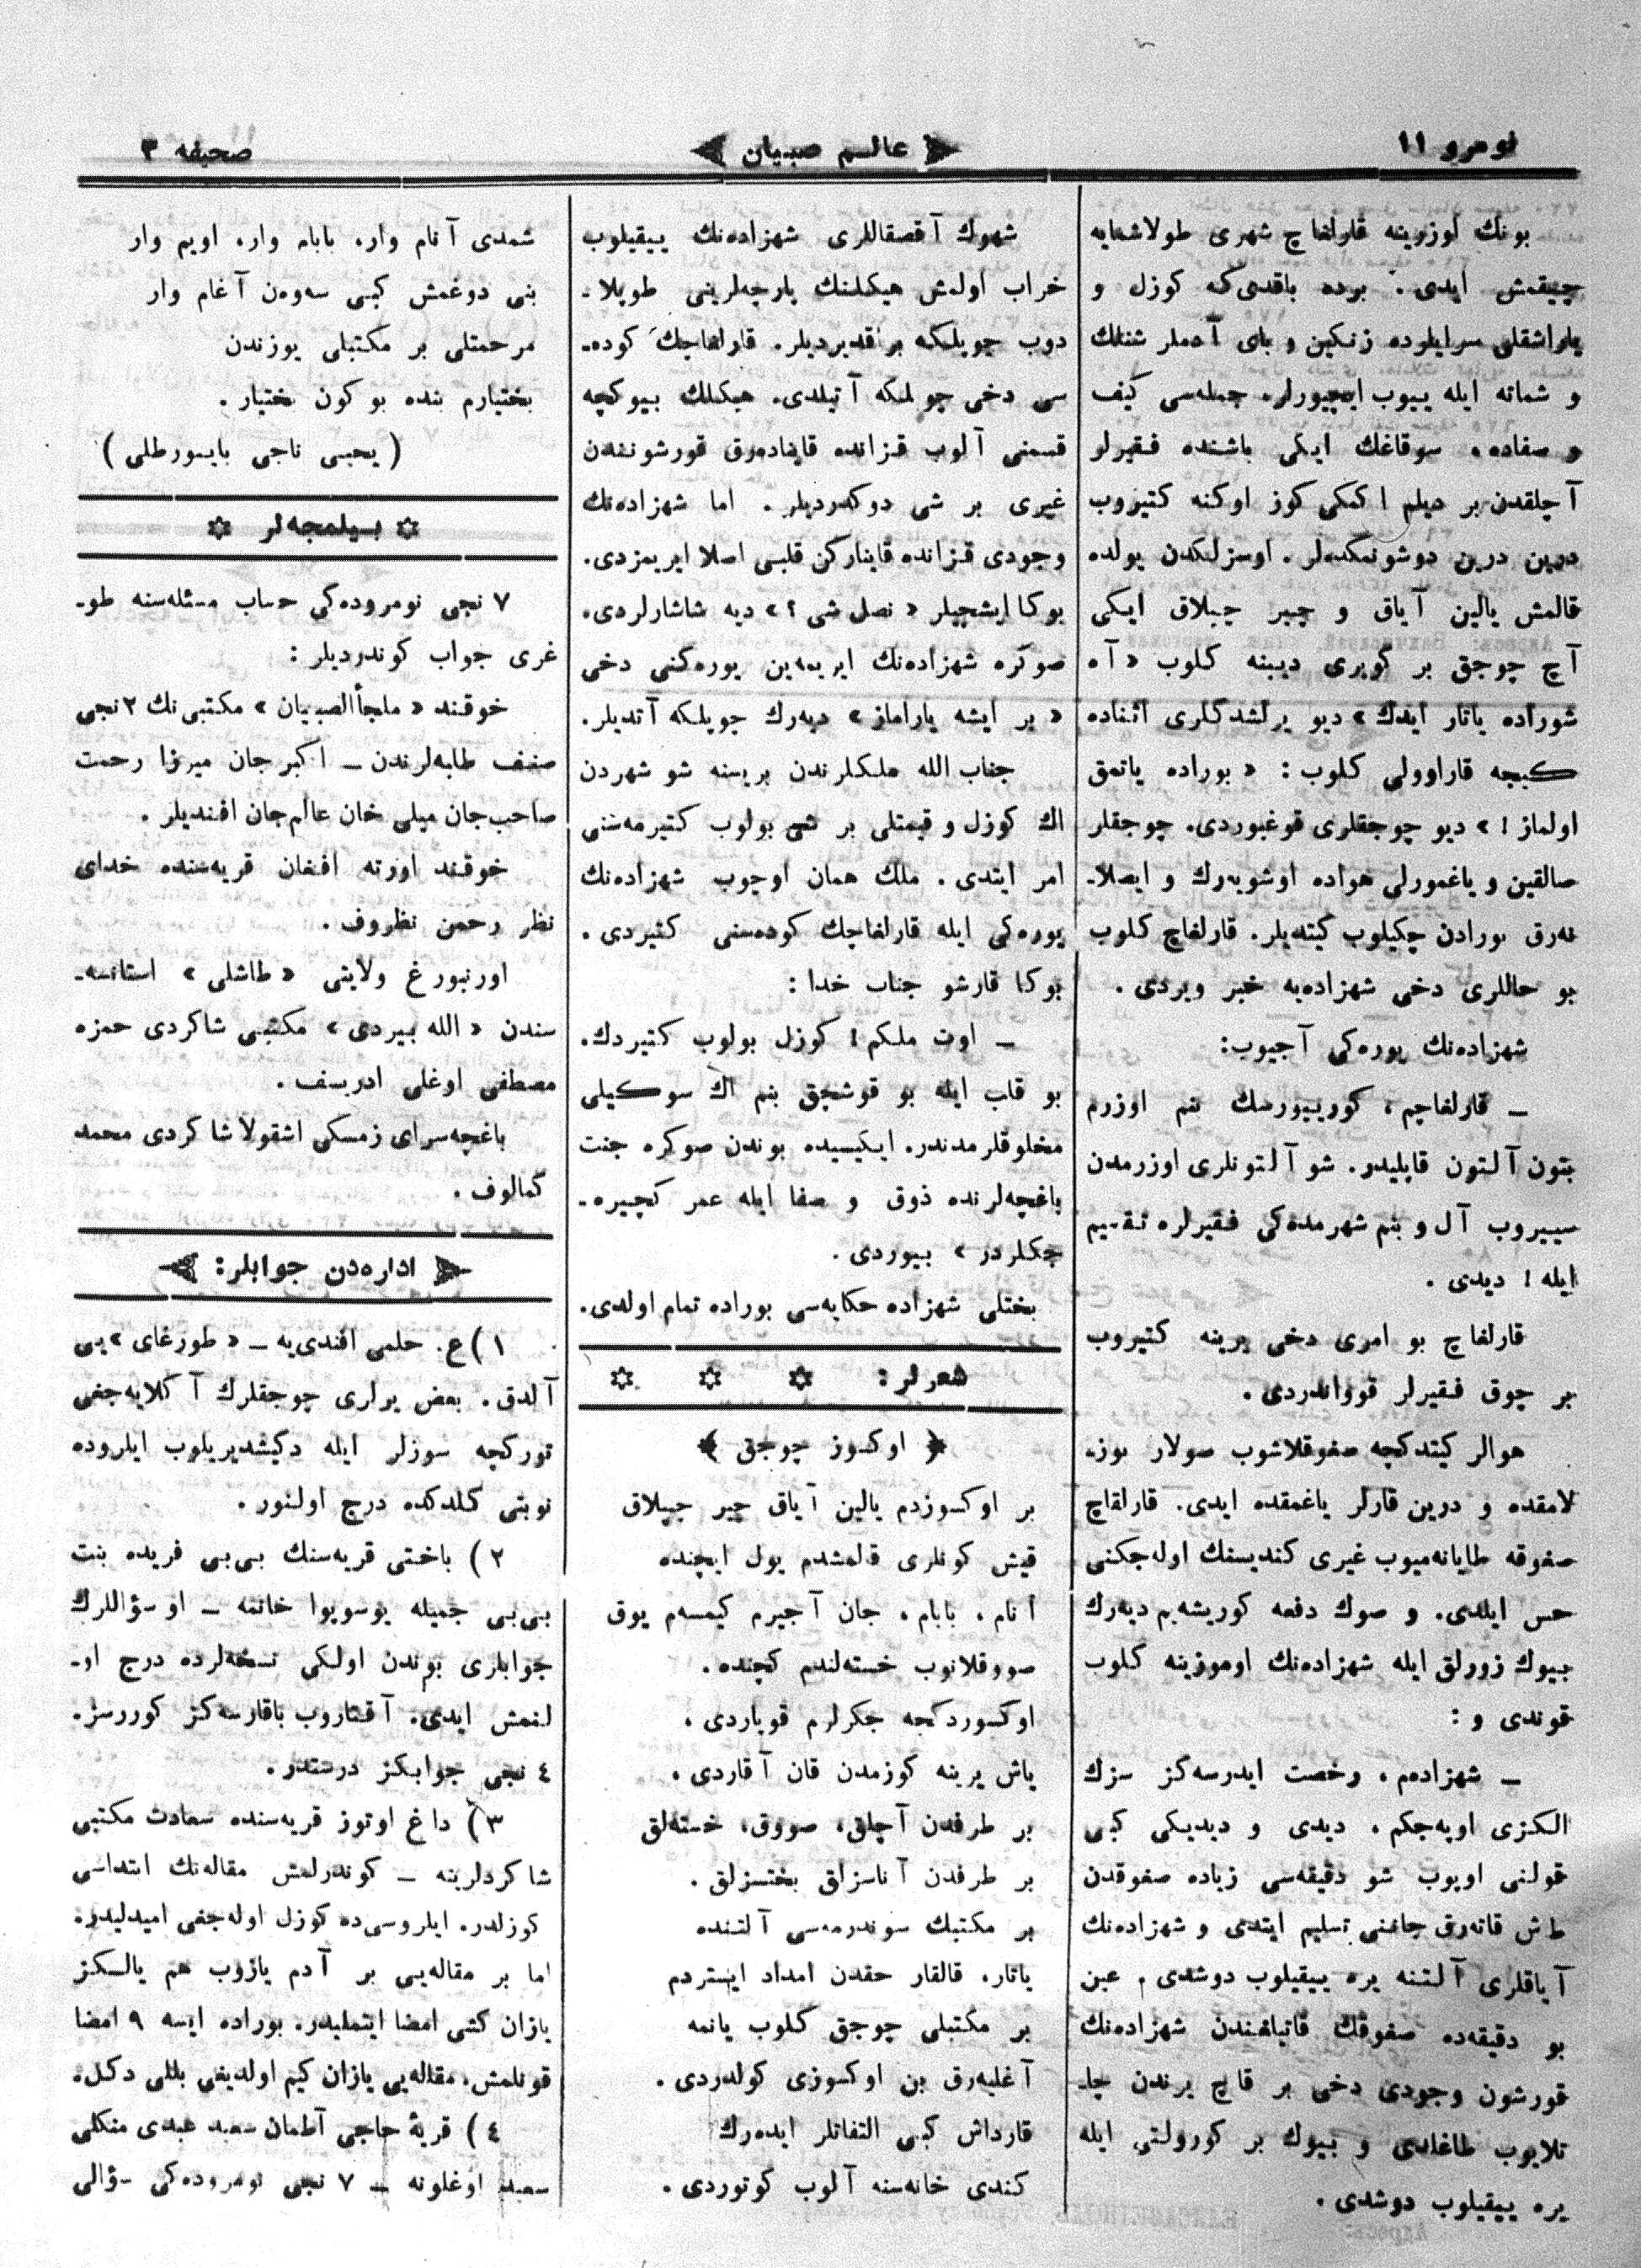 نومرو ١١
﴿ عالم صبيان ﴾
صحيفه ٣
بونك اوزرينه قارلغاچ شهرى طولاشمايه
چيقمش ايدى. برده باقدى‌كه كوزل و
ياراشقلى سرايلرده زنكين و باى آدملر شنلك
و شماته ايله ييوب ايچيورلر. جمله‌سى كيف
و صفاده. سوقاغك ايكى باشنده فقيرلر
آچلقدن بر ديلم اكمكى كوز اوكنه كتيروب
درين درين دوشونمكده‌لر. اوسزلكدن يولده
قالمش يالين آياق و چير چپلاق ايكى
آچ چوجق بر كوپرى ديبنه كلوب « آه
شوراده ياتار ايدك » ديو يرلشدكلرى اثناده
كيجه قاراوولى كلوب : « بوراده ياتمق
اولماز ! » ديو چوجقلرى قوغيوردى. چوجقلر
صالقين و ياغمورلى هواده اوشويه‌رك و ايصلا-
نه‌رق بورادن چكيلوب كيتديلر. قارلغاچ كلوب
بو حاللرى دخى شهزاده‌يه خبر ويردى.
شهزاده‌نك يوره‌كى آجيوب:
— قارلغاچم، كورييورسك بنم اوزرم
بتون آلتون قابليدر. شو آلتونلرى اوزرمدن
سييروب آل و بنم شهرمده‌كى فقيرلره تقسيم
ايله ! ديدى.
قارلغاچ بو امرى دخى يرينه كتيروب
بر چوق فقيرلر قوواندردى.
هوالر كيتدكچه صغوقلاشوب صولار بوز-
لامقده و درين قارلر ياغمقده ايدى. قارلقاچ
صغوقه طايانه‌ميوب غيرى كنديسنك اوله‌جكنى
حس ايلدى. و صوك دفعه كوريشه‌يم ديه‌رك
بيوك زورلق ايله شهزاده‌نك اوموزينه كلوب
قوندى و :
— شهزاده‌م، رخصت ايدرسه‌كز سزك
الكزى اوپه‌جكم. ديدى و ديديكى كبى
قولنى اوپوب شو دقيقه‌سى زياده صغوقدن
طاش قاته‌رق جاننى تسليم ايتدى و شهزاده‌نك
آياقلرى آلتنه يره ييقيلوب دوشدى. عين
بو دقيقه‌ده صغوقك قاتيلغندن شهزاده‌نك
قورشون وجودى دخى بر قاچ يرندن چا-
تلايوب طاغلدى و بيوك بر كورولتى ايله
يره ييقيلوب دوشدى.
شهرك آقصقاللرى شهزاده‌نك ييقيلوب
خراب اولمش هيكلنك پارچه‌لرينى طوپلا-
دوب چوپلكه براقديرديلر. قارلغاجك كوده-
سى دخى چوپلكه آتيلدى. هيكلك بيوكچه
قسمنى آلوب قزانده قايناده‌رق قورشوندن
غيرى بر شى دوكدرديلر. اما شهزاده‌نك
وجودى قزانده قايناركن قلبى اصلا ايريمزدى.
بوكا ايشچيلر « نصل شى ؟ » ديه شاشارلردى.
صوكره شهزاده‌نك ايريمه‌ين يوره‌كنى دخى
« بر ايشه ياراماز » ديه‌رك چوپلكه آتديلر.
جناب الله ملكلرندن بريسنه شو شهردن
اك كوزل و قيمتلى بر شى بولوب كتيرمه‌سنى
امر ايتدى. ملك همان اوچوب شهزاده‌نك
يوره‌كى ايله قارلغاجك كوده‌سنى كتيردى.
بوكا قارشو جناب خدا :
— اوت ملكم ! كوزل بولوب كتيردك.
بو قلب ايله بو قوشجق بنم اك سوكيلى
مخلوقلرمدندر. ايكيسيده بوندن صوكره جنت
باغچه‌لرنده ذوق و صفا ايله عمر كچيره-
جكلردر » بيوردى.
بختلى شهزاده حكايه‌سى بوراده تمام اولدى.
شعرلر:
﴿ اوكسوز چوجق ﴾
بر اوكسوزدم يالين آياق چير چپلاق
قيش كونلرى قالمشدم يول ايچنده
آنام، بابام، جان آجيرم كيمسه‌م يوق
صووقلانوب خسته‌لندم كچنده.
اوكسوردكجه جكرلرم قوپاردى،
ياش يرينه كوزمدن قان آقاردى،
بر طرفدن آچلق، صووق، خسته‌لق
بر طرفدن آناسزلق بختسزلق.
بر مكتبك سوندرمه‌سى آلتنده
ياتار، قالقار حقدن امداد ايستردم
بر مكتبلى چوجق كلوب يانمه
آغليه‌رق بن اوكسوزى كولدردى.
قارداش كبى التفاتلر ايده‌رك
كندى خانه‌سنه آلوب كوتوردى.
شمدى آنام وار، بابام وار، اويم وار
بنى دوغمش كبى سه‌وه‌ن آغام وار
مرحمتلى بر مكتبلى يوزندن
بختيارم بنده بوكون بختيار.
( يحيى ناجى بايبورطلى )
بيلمجه‌لر
٧ نجى نومروده‌كى حساب مسئله‌سنه طو-
غرى جواب كوندرديلر :
خوقند « ملجأالصبيان » مكتبى‌نك ٢ نجى
صنف طلبه‌لرندن — اكبرجان ميرزا رحمت
صاحب‌جان ميلى خان عالم‌جان افنديلر.
خوقند اورته افغان قريه‌سنده خداى
نظر رحمن نظروف.
اورنبورغ ولايتى « طاشلى » استانسه-
سندن « الله بيردى » مكتبى شاكردى حمزه
مصطفى اوغلى ادريسف.
باغچه‌سراى زمسكى اشقولا شاكردى محمد
كمالوف.
﴿ اداره‌دن جوابلر: ﴾
١ ) ع. حلمى افندى‌يه — « طورغاى »يى
آلدق. بعض يرلرى چوجقلرك آكلايه‌جغى
توركچه سوزلر ايله دكيشديريلوب ايلروده
نوبتى كلدكده درج اولنور.
٢ ) باختى قريه‌سنك بى‌بى فريده بنت
بى‌بى جميله يوسوپوا خانمه — او سؤاللرك
جوابلرى بوندن اولكى نسخه‌لرده درج او-
لنمش ايدى. آقتاروب باقارسه‌كز كوررسز.
٤ نجى جوابكز درستدر.
٣ ) داغ اوتوز قريه‌سنده سعادت مكتبى
شاكردلرينه — كوندرلمش مقاله‌نك ابتداسى
كوزلدر. ايلروسى‌ده كوزل اوله‌جغى اميدليدر.
اما بر مقاله‌يى بر آدم يازوب هم يالكز
يازان كشى امضا ايتمليدر. بوراده ايسه ٩ امضا
قونلمش، مقاله‌يى يازان كيم اولديغى بللى دكل.
٤ ) قريۀ حاجى آطمان سعيد عبدى منكلى
سعيد اوغلونه — ٧ نجى نومروده‌كى سؤالى